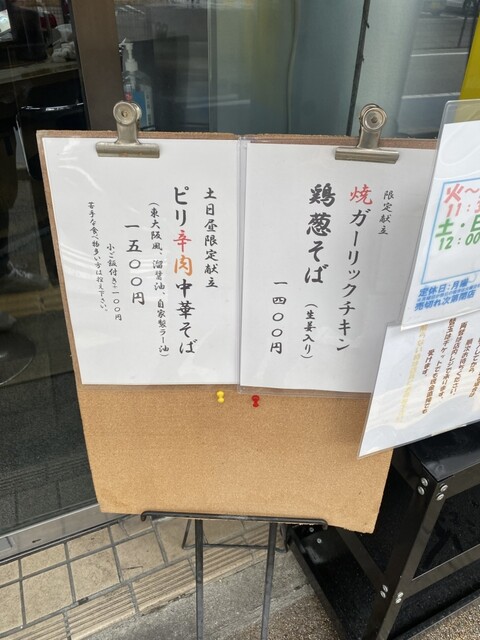 限定献立
焼ガーリックチキン
鶏葱そば
(生姜入り)
一四〇〇円
土日昼限定献立
ピリ辛肉中華そば
(東大阪風、溜醤油、自家製ラー油)
一五〇〇円
小ご飯付き+一〇〇円
苦手な食べ物多い方は控え下さい。
火〜
11:3
土・日
12:00
定休日:月曜
売切れ次第閉店